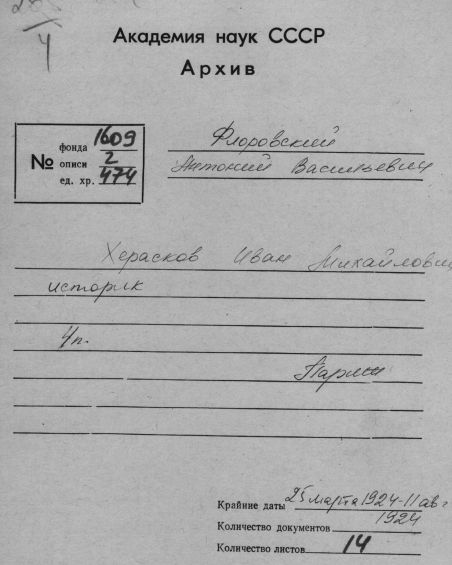 4
Академия наук СССР
Архив
№
фонда 1609
описи 2
ед. хр. 474
Флоровский
Антоний Васильевич
Херасков Иван Михайлович
историк
4п.
Париж
Крайние даты 25 марта 1924-11 авг
1924
Количество документов
Количество листов 14